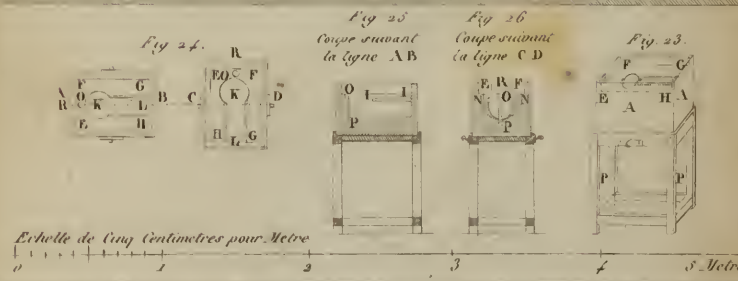 Fig 24.
R
F G
A O B
R K L
E H
R
EO F
C K D
H L G
Fig 25
Coupe suivant
la ligne A B
O I I
P
Fig 26
Coupe suivant
la ligne C D
E R F
N O N
P
Fig. 23.
F G
E H A
A
P P
Echelle de Cinq Centimetres pour Metre
0 1 2 3 4 5 Metre